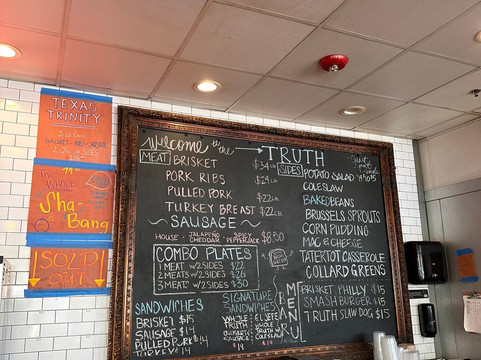 TEXAS
TRINITY
BRISKET·RIBS·SAUSAGE
SIDES
The WHOLE
Sha-
Bang
SOLD
OUT
Welcome to the TRUTH
MEAT
BRISKET $34 LB
PORK RIBS $24 LB
PULLED PORK $22 LB
TURKEY BREAST $22 LB
SAUSAGE
HOUSE · JALAPEÑO CHEDDAR · SPICY PEPPERJACK $8.50
COMBO PLATES
1 MEAT w/2 SIDES $22
2 MEATS w/2 SIDES $26
3 MEATS w/2 SIDES $30
SANDWICHES
BRISKET $15
SAUSAGE $14
PULLED PORK $14
TURKEY $14
SIGNATURE
SANDWICHES
SIDES
POTATO SALAD
COLESLAW
BAKED BEANS
BRUSSELS SPROUTS
CORN PUDDING
MAC & CHEESE
TATERTOT CASSEROLE
COLLARD GREENS
MENU
BRISKET PHILLY $15
SMASHBURGER $15
TRUTH SLAW DOG $15